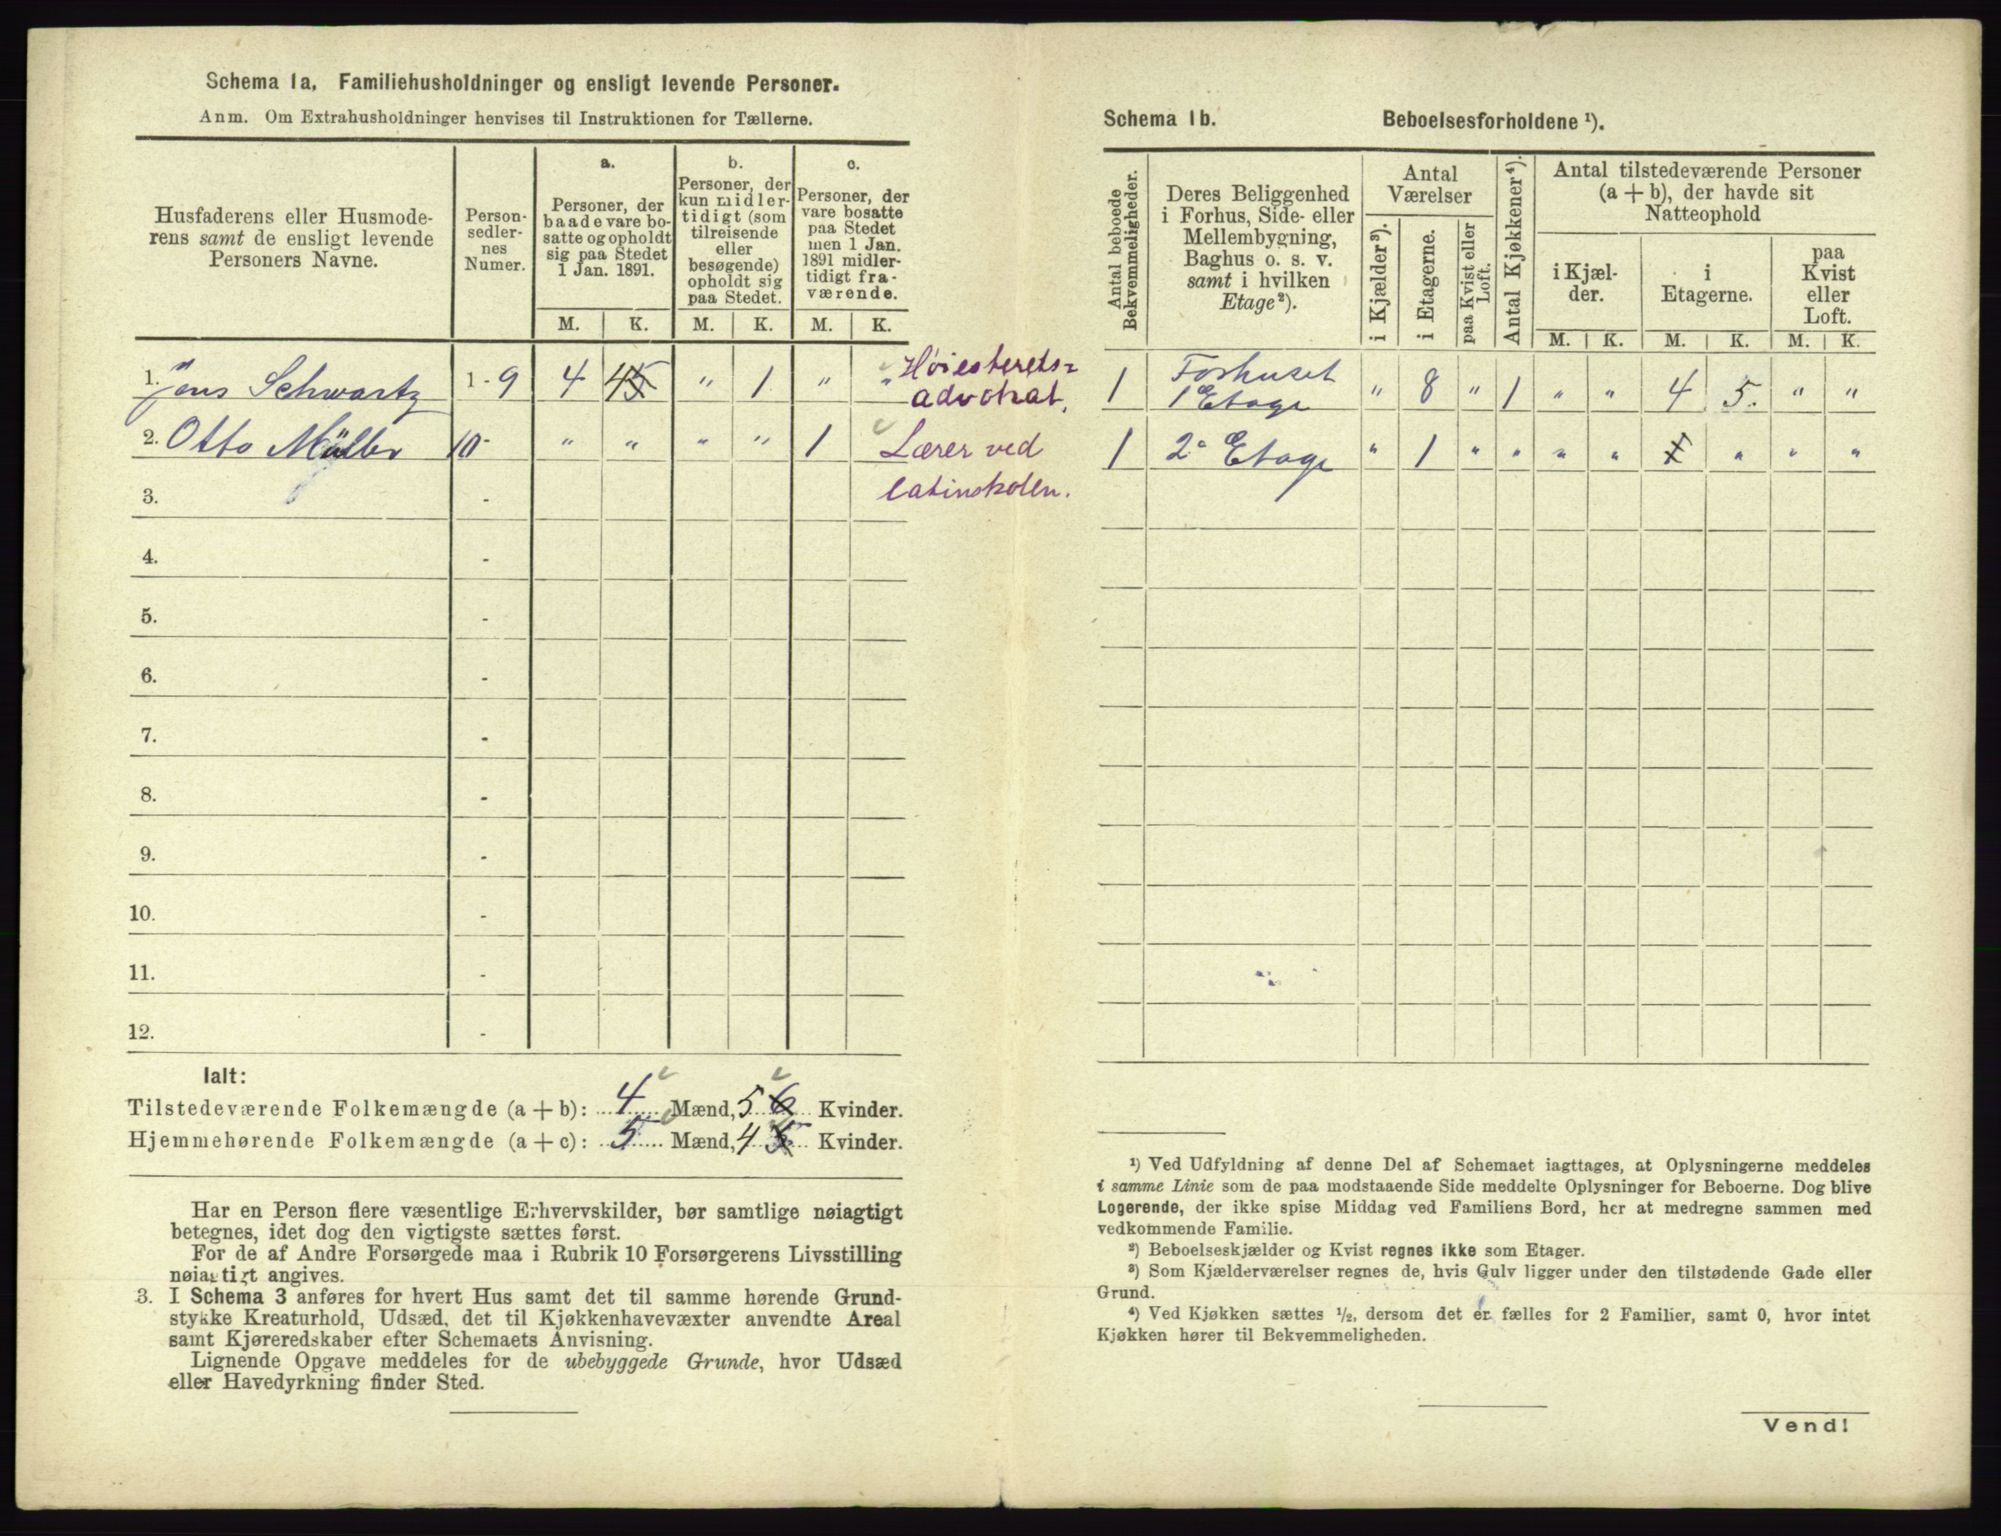 Schema 1a. Familiehusholdninger og ensligt levende Personer.
Anm. Om Extrahusholdninger henvises til Instruktionen for Tællerne.
Husfaderens eller Husmode-
rens samt de ensligt levende
Personers Navne.
Person-
sedler-
nes
Numer.
a.
Personer, der
baade vare bo-
satte og opholdt
sig paa Stedet
1 Jan. 1891.
b.
Personer, der
kun midler-
tidigt (som
tilreisende
eller
besøgende)
opholdt sig
paa Stedet.
c.
Personer, der
vare bosatte
paa Stedet
men 1 Jan.
1891 midler-
tidigt fra-
værende.
M. K. M. K. M. K.
1. Jens Schwartz 1-9 4 4 5 " 1 " " Høiesterets=
advokat.
2. Otto Müller 10- " " " " 1 Lærer ved
latinskolen.
3. -
4. -
5. -
6. -
7. -
8. -
9. -
10. -
11. -
12. -
Ialt:
Tilstedeværende Folkemængde (a + b): 4 Mænd, 5 6 Kvinder.
Hjemmehørende Folkemængde (a + c): 5 Mænd, 4 5 Kvinder.
Har en Person flere væsentlige Erhvervskilder, bør samtlige nøiagtigt
betegnes, idet dog den vigtigste sættes først.
For de af Andre Forsørgede maa i Rubrik 10 Forsørgerens Livsstilling
nøiagtigt angives.
3. I Schema 3 anføres for hvert Hus samt det til samme hørende Grund-
stykke Kreaturhold, Udsæd, det til Kjøkkenhavevæxter anvendte Areal
samt Kjøreredskaber efter Schemaets Anvisning.
Lignende Opgave meddeles for de ubebyggede Grunde, hvor Udsæd
eller Havedyrkning finder Sted.
Schema 1b. Beboelsesforholdene ¹).
Antal beboede
Bekvemmeligheder.
Deres Beliggenhed
i Forhus, Side- eller
Mellembygning,
Baghus o. s. v.
samt i hvilken
Etage²).
Antal
Værelser
i Kjælder³).
i Etagerne.
paa Kvist eller
Loft.
Antal Kjøkkener⁴).
Antal tilstedeværende Personer
(a + b), der havde sit
Natteophold
i Kjæl-
der.
i
Etagerne.
paa
Kvist
eller
Loft.
M. K. M. K. M. K.
1 Forhuset
1 Etage " 8 " 1 " " 4 5. " "
1 2 Etage " 1 " " " " 1 " " "
¹) Ved Udfyldning af denne Del af Schemaet iagttages, at Oplysningerne meddeles
i samme Linie som de paa modstaaende Side meddelte Oplysninger for Beboerne. Dog blive
Logerende, der ikke spise Middag ved Familiens Bord, her at medregne sammen med
vedkommende Familie.
²) Beboelseskjælder og Kvist regnes ikke som Etager.
³) Som Kjælderværelser regnes de, hvis Gulv ligger under den tilstødende Gade eller
Grund.
⁴) Ved Kjøkken sættes ½, dersom det er fælles for 2 Familier, samt 0, hvor intet
Kjøkken hører til Bekvemmeligheden.
Vend!